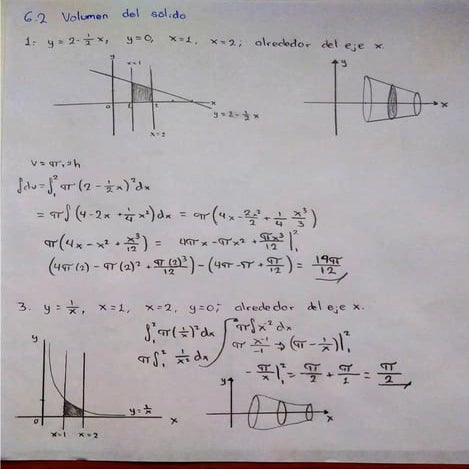 6.2 Volumen del solido
1. y = 2 - 1/2 x, y = 0, x = 1, x = 2; alrededor del eje x.
y
x=1
0
x
y = 2 - 1/2 x
x=2
y
x
V = π r² h
∫dv = ∫₁² π (2 - 1/2 x)² dx
= π ∫ (4 - 2x + 1/4 x²) dx = π (4x - 2x²/2 + 1/4 x³/3)
π (4x - x² + x³/12) = 4πx - πx² + πx³/12 |₁²
(4π(2) - π(2)² + π(2)³/12) - (4π - π + π/12) = 19π/12
3. y = 1/x, x = 1, x = 2, y = 0; alrededor del eje x.
∫₁² π (1/x)² dx
π ∫₁² 1/x² dx
π ∫ x⁻² dx
π x⁻¹/-1 → (π - 1/x) |₁²
- π/x |₁² = - π/2 + π/1 = π/2
y
0
x=1
x=2
y = 1/x
x
y
x